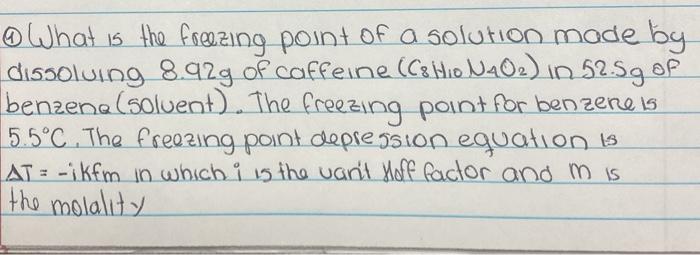 ④ What is the freezing point of a solution made by
dissolving 8.92g of caffeine (C8H10N4O2) in 52.5g of
benzene (solvent). The freezing point for benzene is
5.5°C. The freezing point depression equation is
ΔT = -iKfm in which i is the van't Hoff factor and m is
the molality